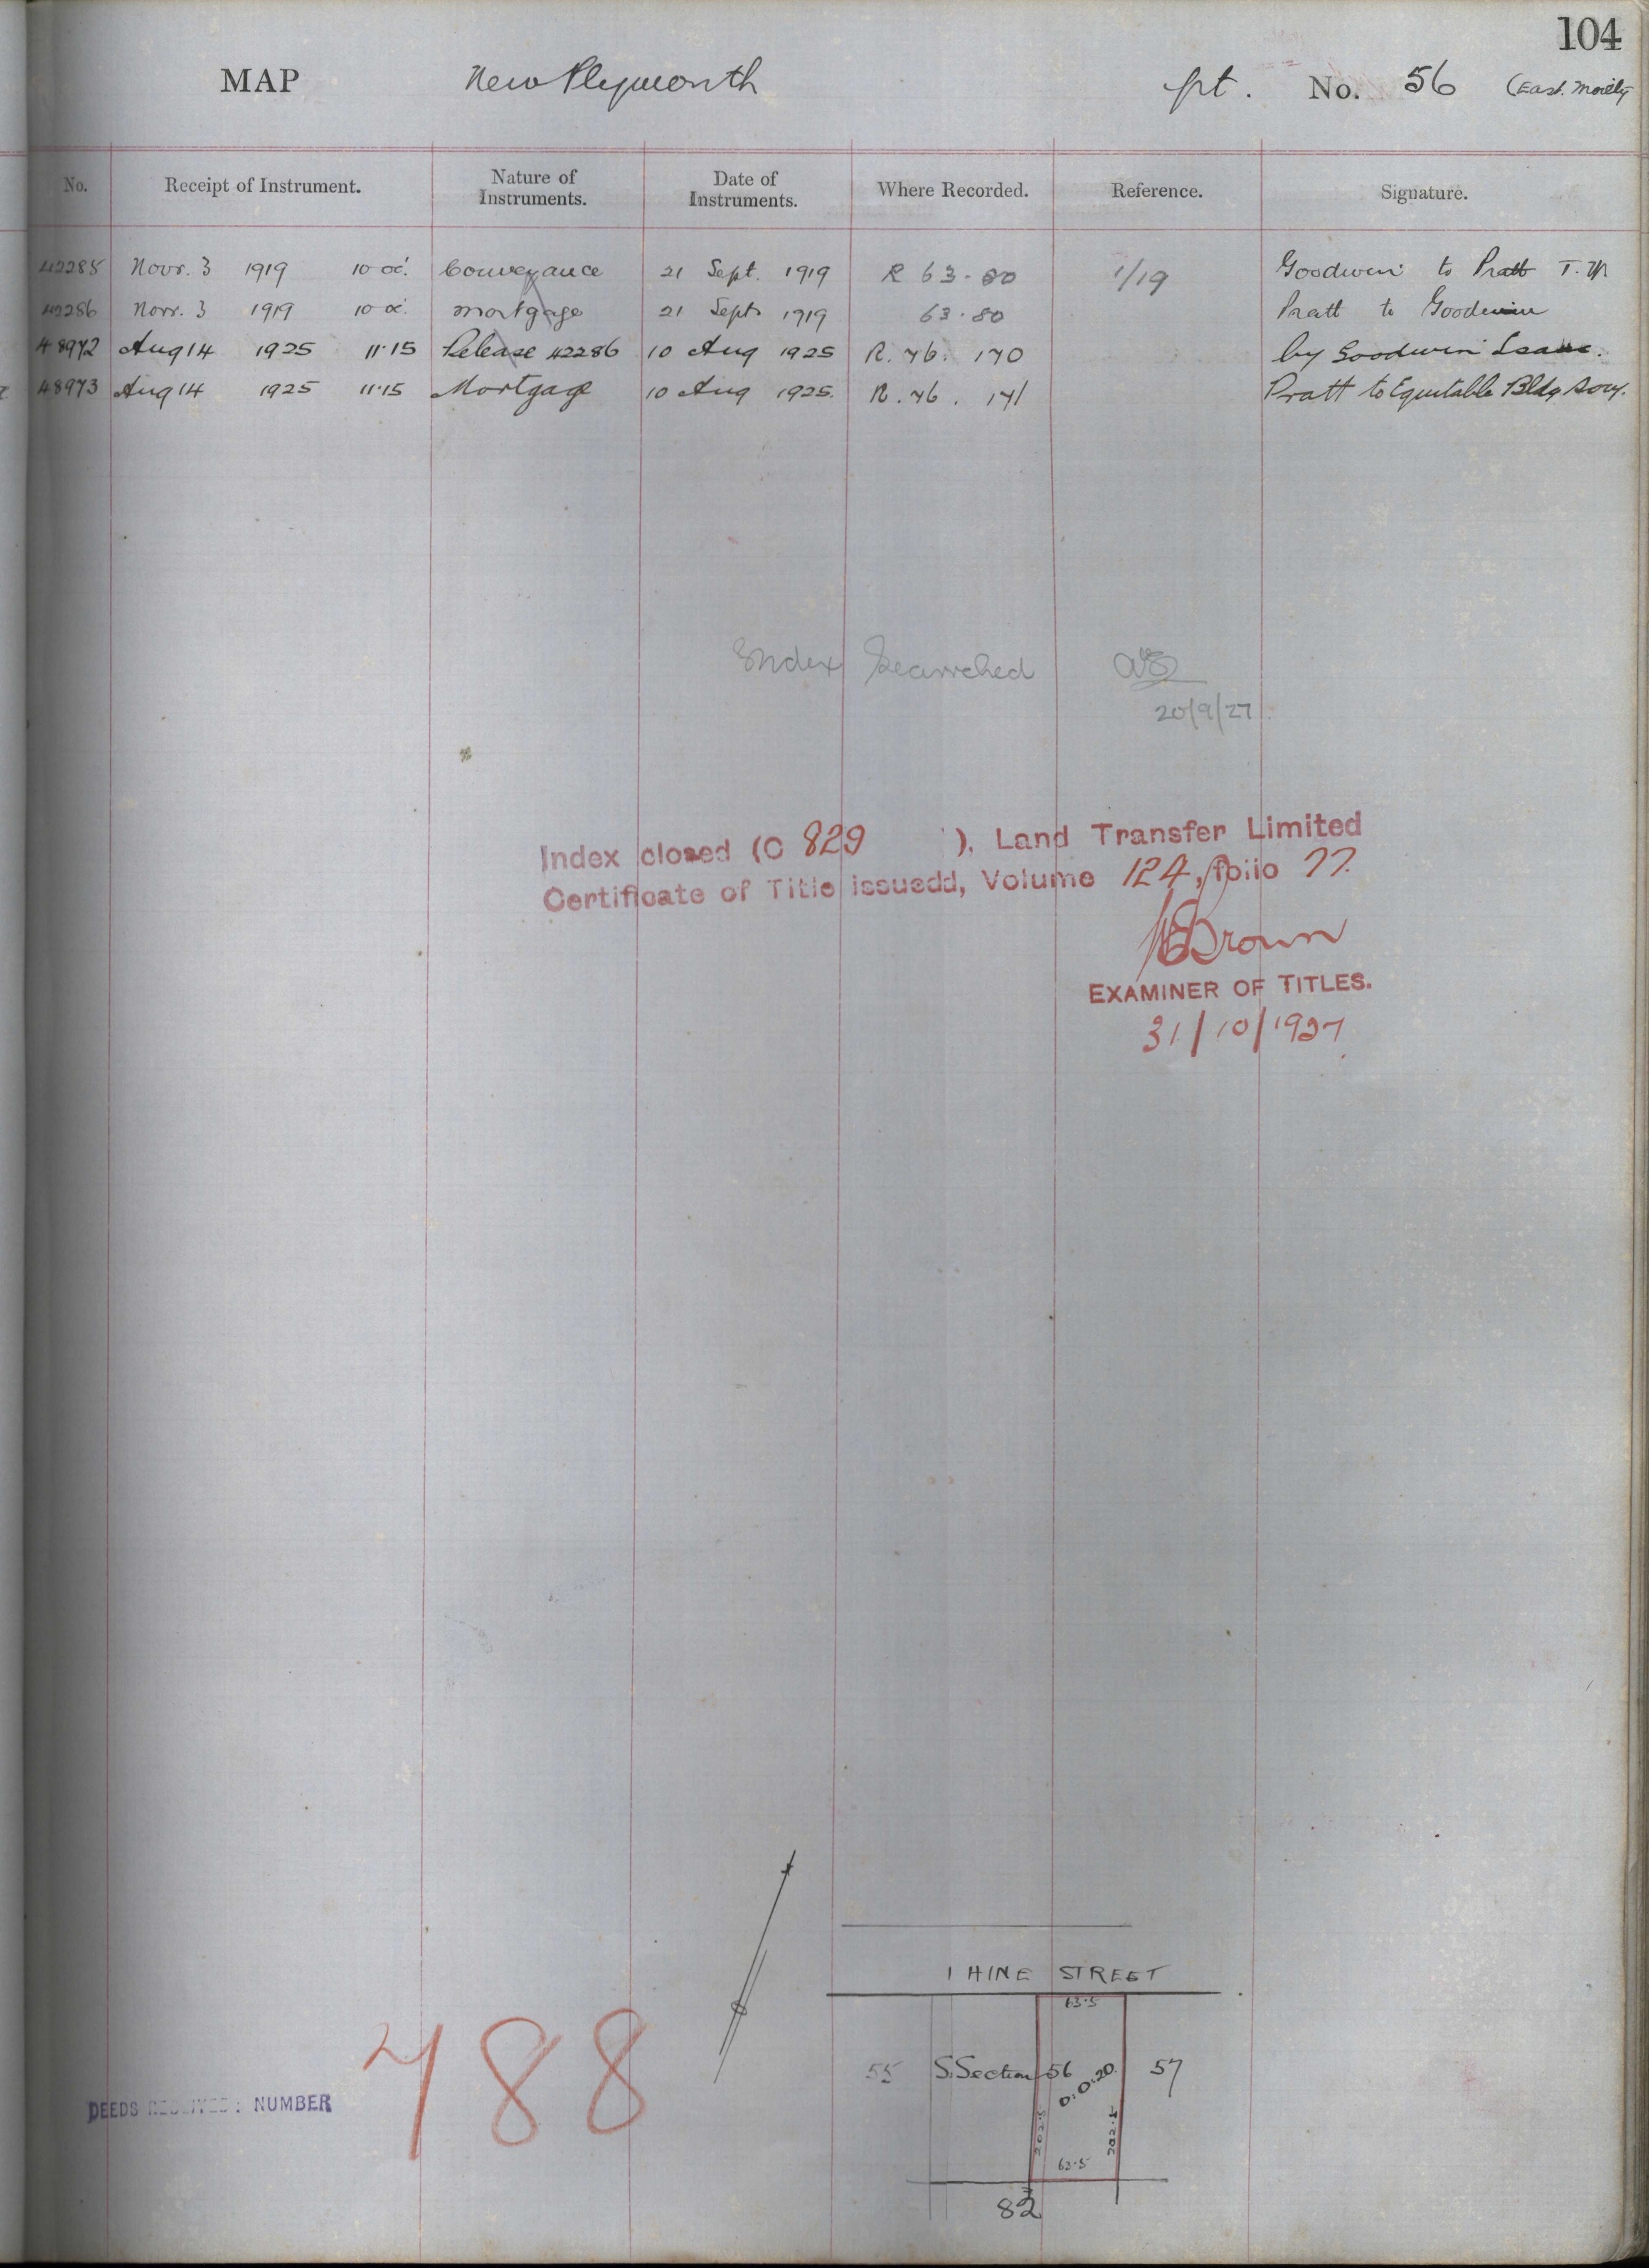 104
MAP New Plymouth pt. No. 56 (East. Moiety
No. Receipt of Instrument. Nature of Instruments. Date of Instruments. Where Recorded. Reference. Signature.
42285 Novr. 3 1919 10 oc. Conveyance 21 Sept. 1919 R 63. 80 1/19 Goodwin to Pratt
42286 Novr. 3 1919 10 oc. Mortgage 21 Sept 1919 63. 80 Pratt to Goodwin
48972 Aug 14 1925 11.15 Release 42286 10 Aug 1925 R. 76. 170 by Goodwin Isaac.
48973 Aug 14 1925 11.15 Mortgage 10 Aug 1925. R. 76. 171 Pratt to Equitable Bldg Socy.
Index Searched
20/9/27
Index closed (C 829 ), Land Transfer Limited
Certificate of Title issuedd, Volume 124, foiio 77.
Brown
EXAMINER OF TITLES.
31/10/1927
I HINE STREET
63.5
55 S. Section 56 57
0:0:20
202.5 202.5
62.5
82
DEEDS RECEIVED: NUMBER 788